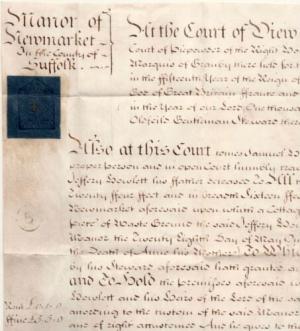 Manor of
Newmarket
In the County of
Suffolk
At the Court of View
Court of Piepowder of the Right
Marquis of Granby there held for
in the fifteenth Year of the Reign of
God of Great Britain ffrance and
in the Year of our Lord One thous
Gentleman Steward there
Also at this Court comes Samuel
proper person and in open Court humbly
Jeffery Howlett his ffather deceased To All
Twenty four ffeet and in breadth Sixteen ffee
Newmarket aforesaid upon which a Cottag
piece of Waste Ground the said Jeffery
Manor the Twenty Eighth Day of May One
the Death of his Mother To
by his Steward aforesaid hath granted a
and To Hold the premisses aforesaid
Howlett and his Heirs of the Lord of the sa
according to the custom of the said Manor
and of right accustomed And he gives to